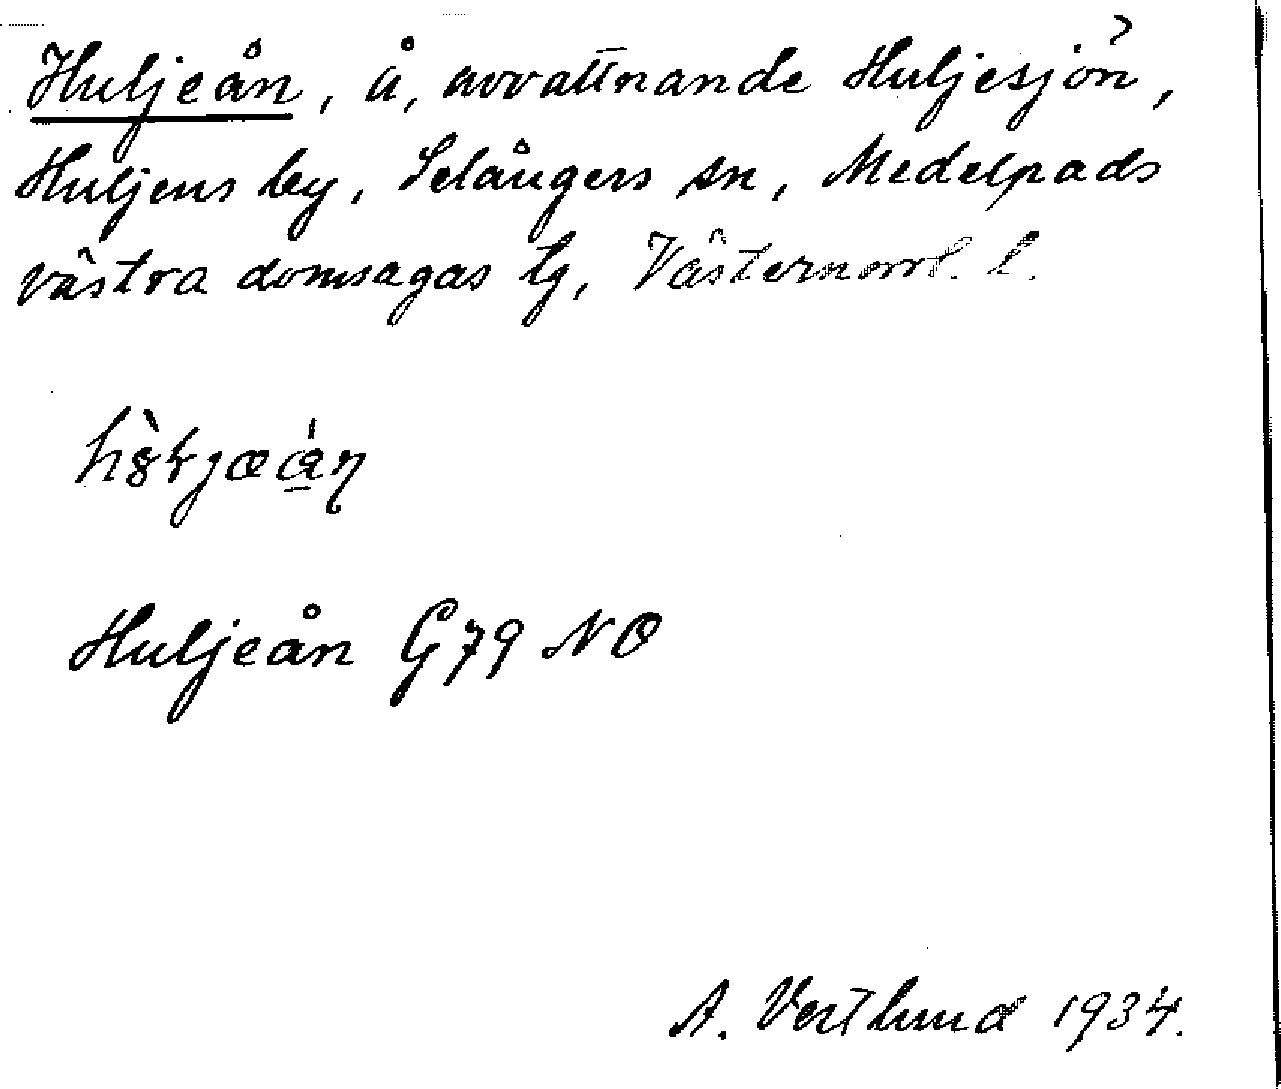 Huljeån, å, avvattnande Huljesjön,
Huljens by, Selångers sn, Medelpads
västra domsagas tg, Västernorrl. l.
Huljeån G79 NO
A. Vestlund 1934.